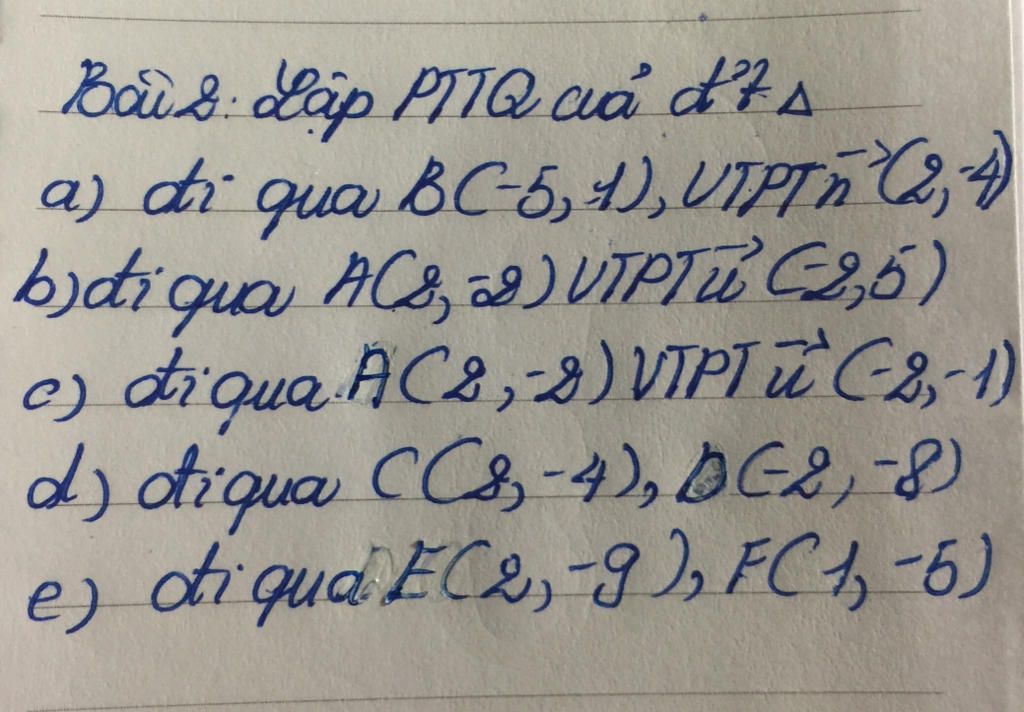 Bài 2: Lập PTTQ của đ²t Δ
a) đi qua B(-5,1), VTPT n→(2,-4)
b) đi qua A(2,-2) VTPT u→(-2,5)
c) đi qua A(2,-2) VTPT u→(-2,-1)
d) đi qua C(2,-4), D(-2,-8)
e) đi qua E(2,-9), F(1,-5)